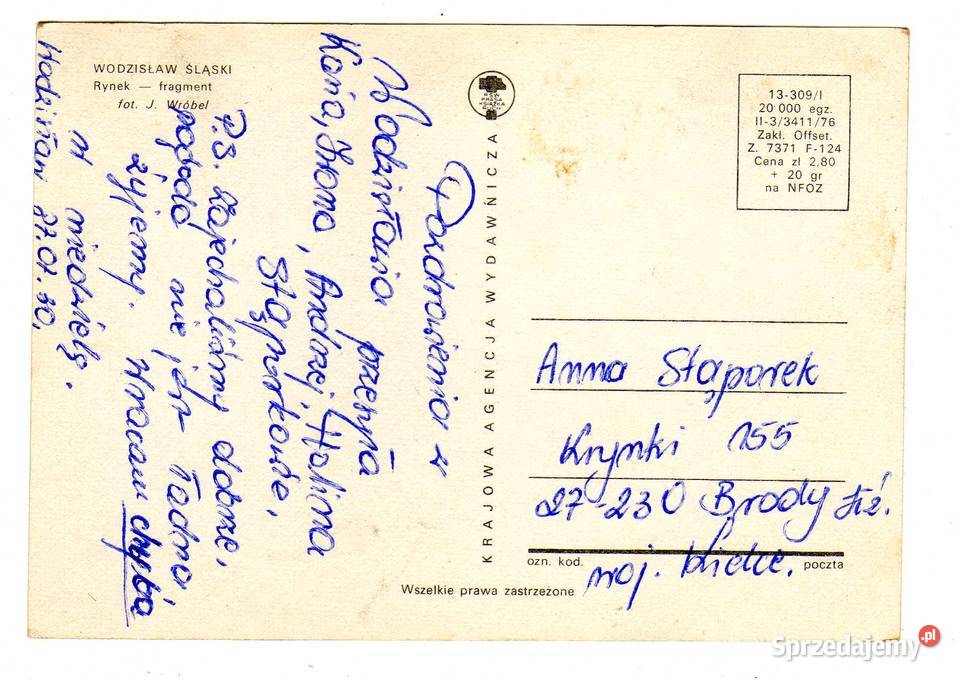 WODZISŁAW ŚLĄSKI
Rynek — fragment
fot. J. Wróbel
Pozdrowienia z
Wodzisławia przesyła
Kasia, Iwona, Andrzej, Halina
Stąporkowie.
P.S. Zajechaliśmy dobrze,
pogoda nie jest ładna,
żyjemy. Wracam chyba
w niedzielę.
Wodzisław 27.01.80.
KRAJOWA AGENCJA WYDAWNICZA
RSW
PRASA
KSIĄŻKA
RUCH
13-309/I
20 000 egz.
II-3/3411/76
Zakł. Offset.
Z. 7371 F-124
Cena zł 2,80
+ 20 gr
na NFOZ
Anna Stąporek
Krynki 155
27-230 Brody Iłż.
woj. Kielce.
ozn. kod.
poczta
Wszelkie prawa zastrzeżone
Sprzedajemy.pl